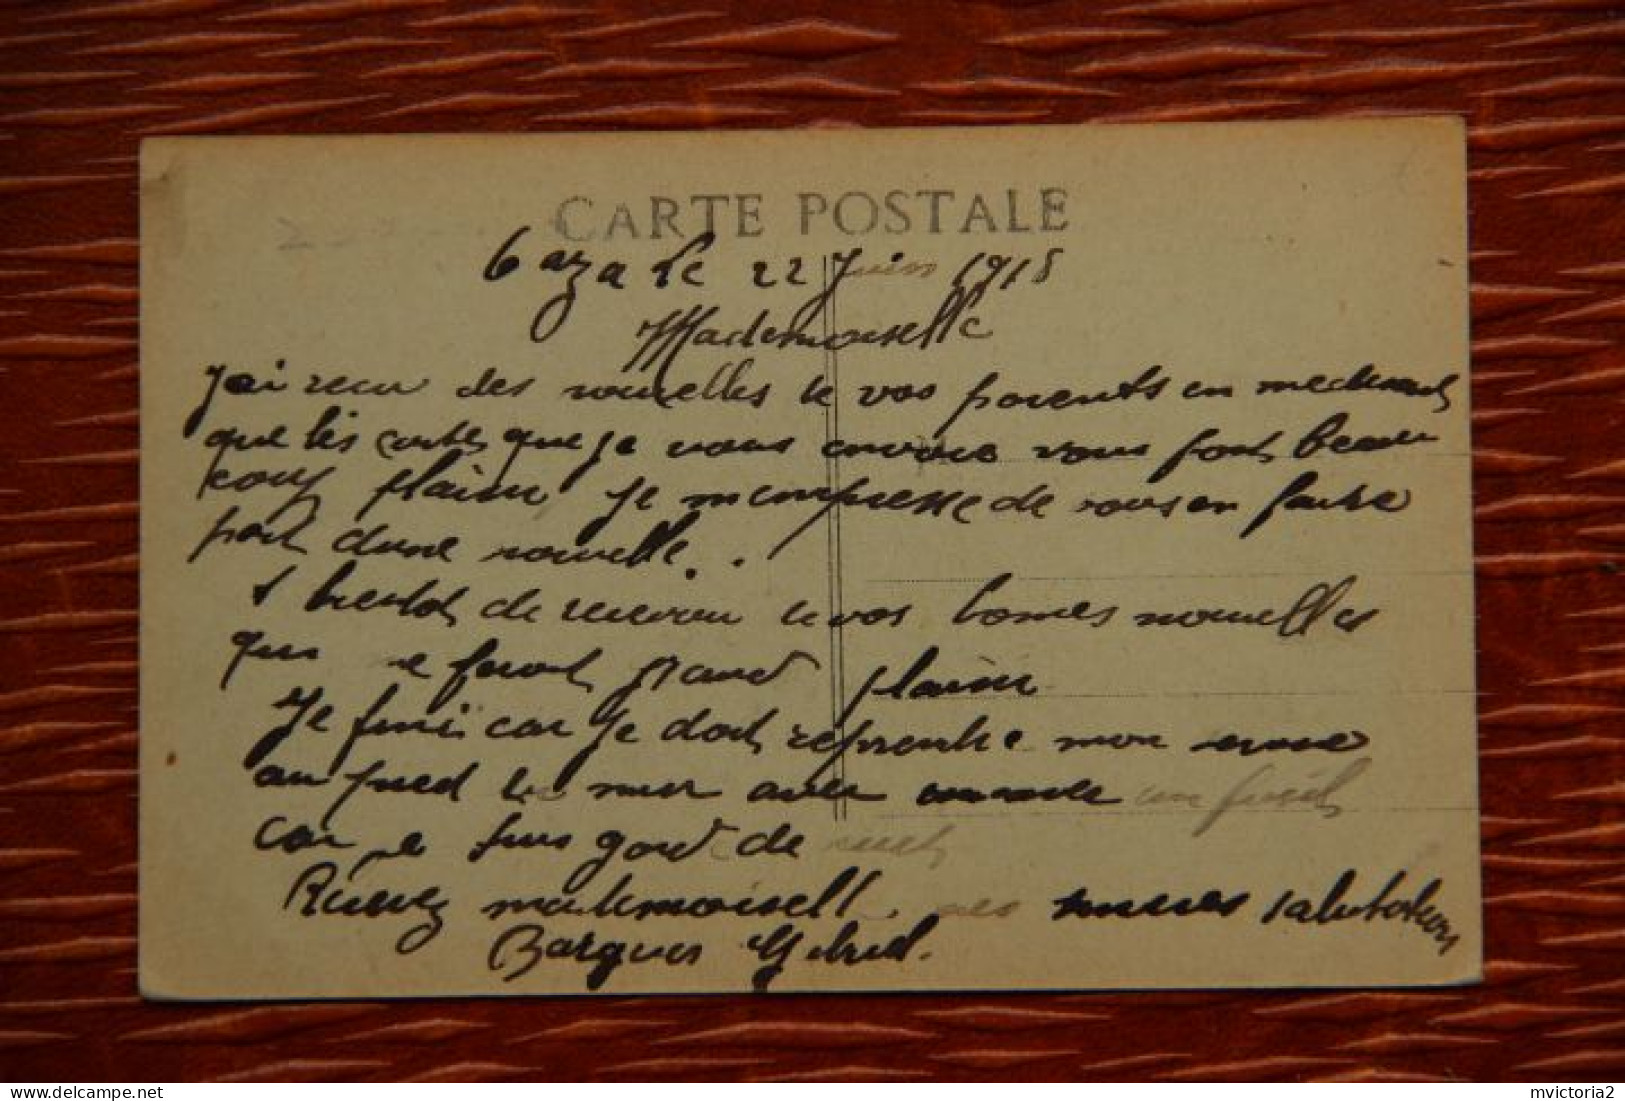 CARTE POSTALE
Gaza le 22 Juin 1918
Mademoiselle
J'ai recu des nouvelles de vos parents en me disant
que les cartes que je vous envoie vous font beau
coup plaisir je m'empresse de vous en faire
part d'une nouvelle..
A bientot de recevoir de vos bonnes nouvelles
qui me feront grand plaisir
Je fini car je doit reprendre mon
au pied du mur avec un fusil
car je suis gard de nuit
Recevez mademoiselle mes salutations
Bargues Gabriel.
mvictoria2